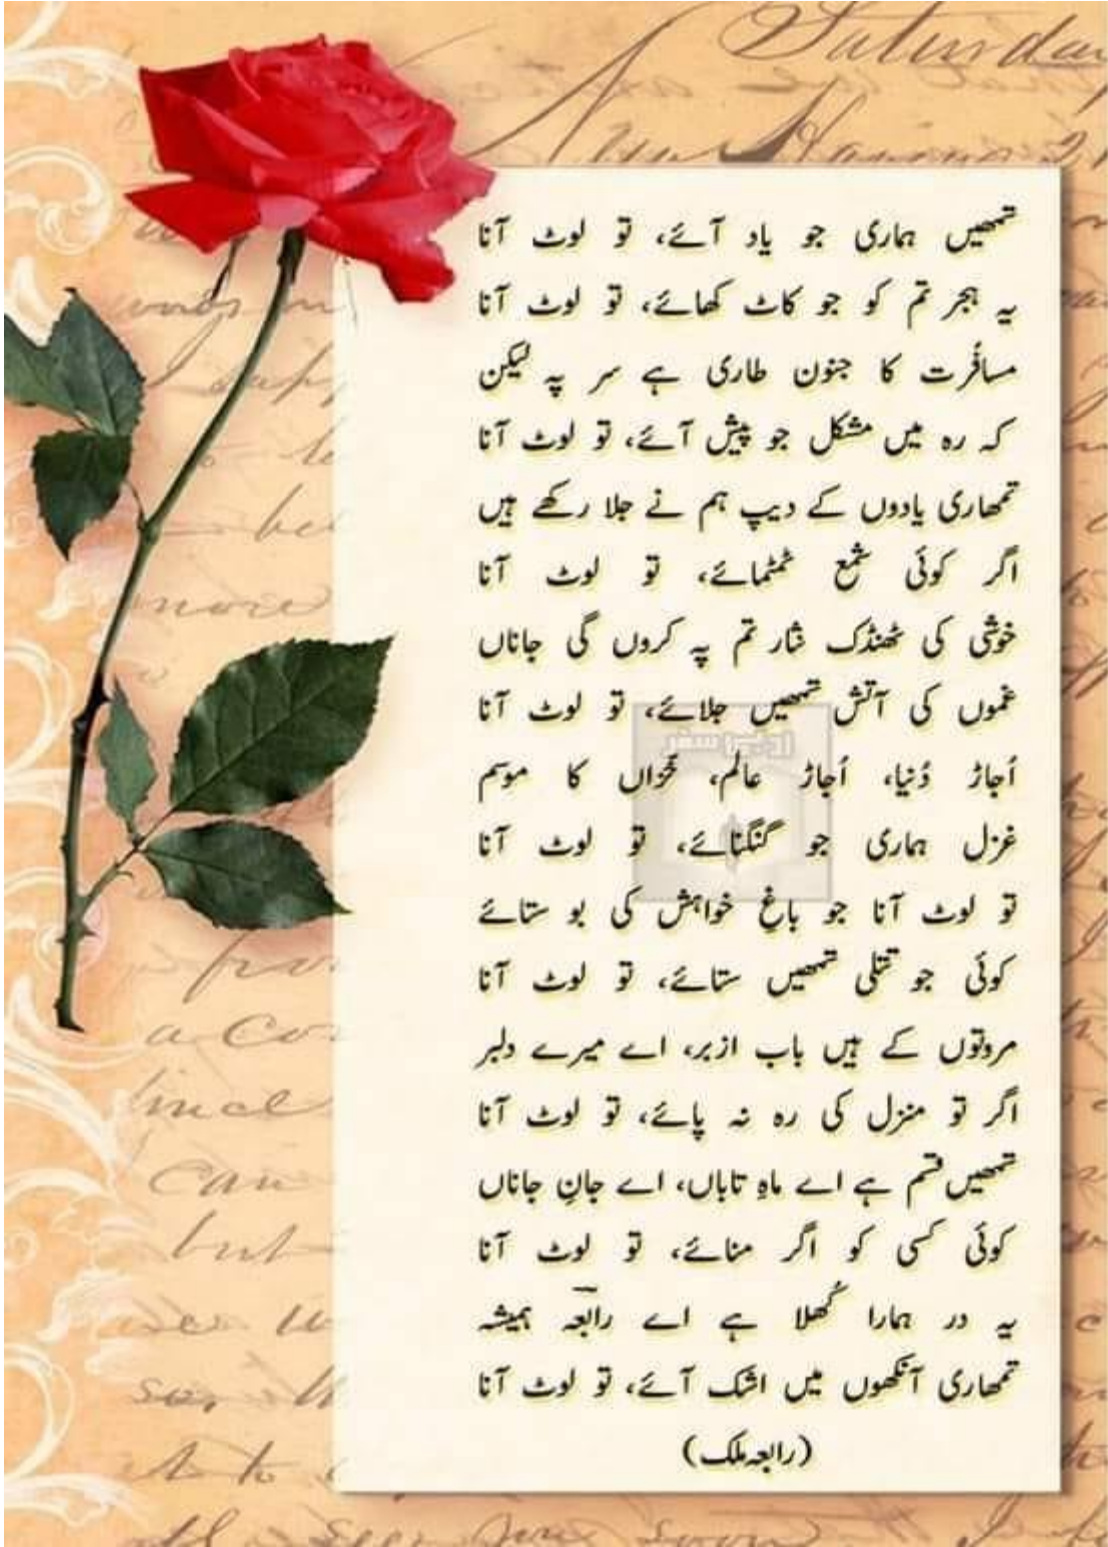 Saturday
New Haven
تمھیں ہماری جو یاد آئے، تو لوٹ آنا
یہ ہجر تم کو جو کاٹ کھائے، تو لوٹ آنا
مسافرت کا جنون طاری ہے سر پہ لیکن
کہ رہ میں مشکل جو پیش آئے، تو لوٹ آنا
تمھاری یادوں کے دیپ ہم نے جلا رکھے ہیں
اگر کوئی شمع ٹمٹمائے، تو لوٹ آنا
خوشی کی ٹھنڈک نثار تم پہ کروں گی جاناں
غموں کی آتش تمھیں جلائے، تو لوٹ آنا
اُجاڑ دُنیا، اُجاڑ عالم، خزاں کا موسم
غزل ہماری جو گنگنائے، تو لوٹ آنا
تو لوٹ آنا جو باغِ خواہش کی بو ستائے
کوئی جو تتلی تمھیں ستائے، تو لوٹ آنا
مروتوں کے ہیں باب ازبر، اے میرے دلبر
اگر تو منزل کی رہ نہ پائے، تو لوٹ آنا
تمھیں قسم ہے اے ماہِ تاباں، اے جانِ جاناں
کوئی کسی کو اگر منائے، تو لوٹ آنا
یہ در ہمارا کُھلا ہے اے رابعہؔ ہمیشہ
تمھاری آنکھوں میں اشک آئے، تو لوٹ آنا
(رابعہ ملک)